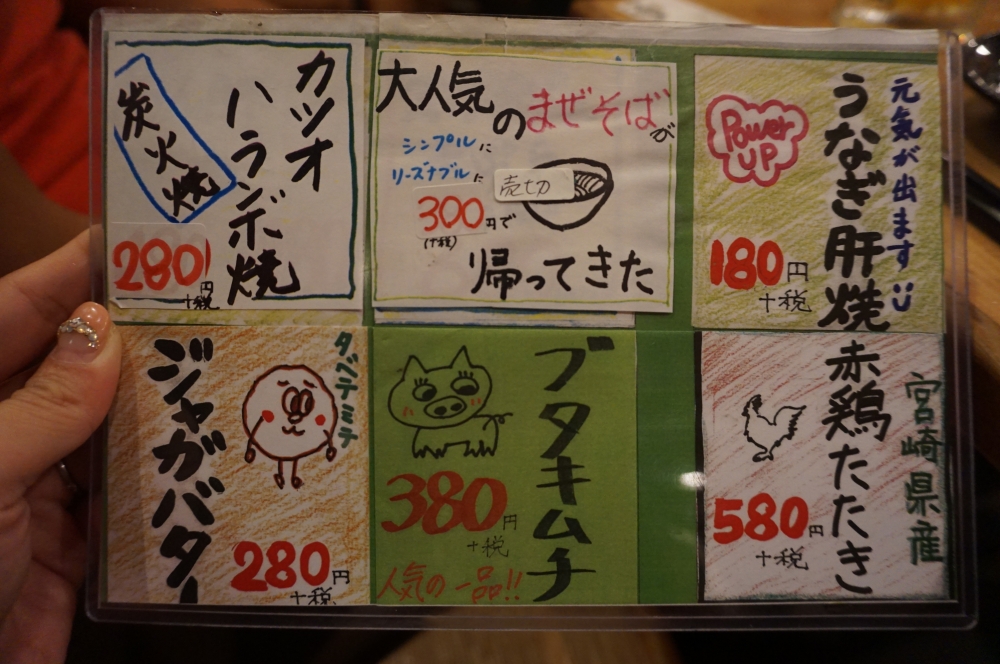 カツオ
ハランボ焼
炭火焼
280円
+税
大人気のまぜそばが
シンプルに
リーズナブルに
売切
300円で
(+税)
帰ってきた
元気が出ます
うなぎ肝焼
Power
UP
180円
+税
タベテミテ
ジャガバター
280円
+税
ブタキムチ
380円
+税
人気の一品!!
宮崎県産
赤鶏たたき
580円
+税